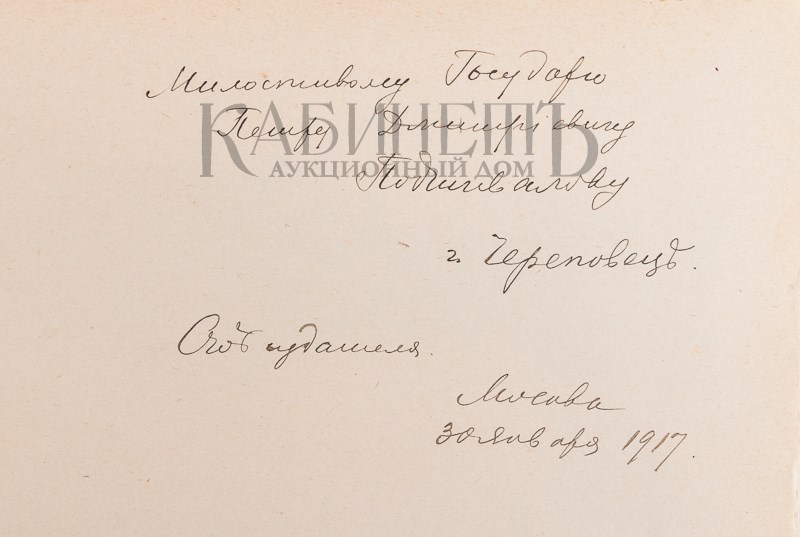 Милостивому Государю
Петру Дмитріевичу
КАБИНЕТЪ
АУКЦИОННЫЙ ДОМ
Подшивалову
г. Череповецъ.
Отъ издателя.
Москва
30 января 1917.